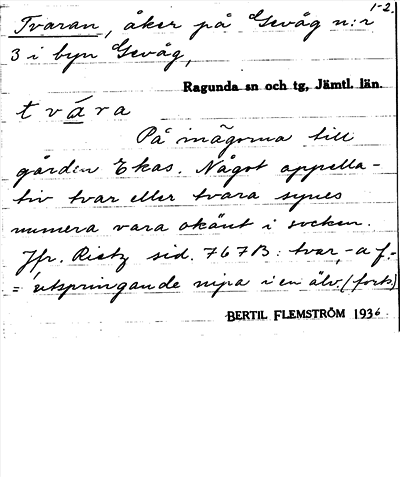 1-2.
Tvaran, åker på Gevåg n:r
3 i byn Gevåg,
Ragunda sn och tg, Jämtl. län.
tvára
På inägorna till
gården Ekas. Något appella-
tiv tvar eller tvara synes
numera vara okänt i socken.
Jfr. Rietz sid. 767B: tvar, -a f.
= utspringande nipa i en älv. (forts.)
BERTIL FLEMSTRÖM 1936